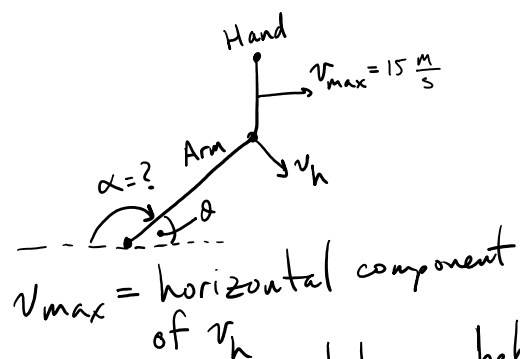 Hand
v_max = 15 m/s
Arm
v_h
α=?
θ
v_max = horizontal component
of v_h